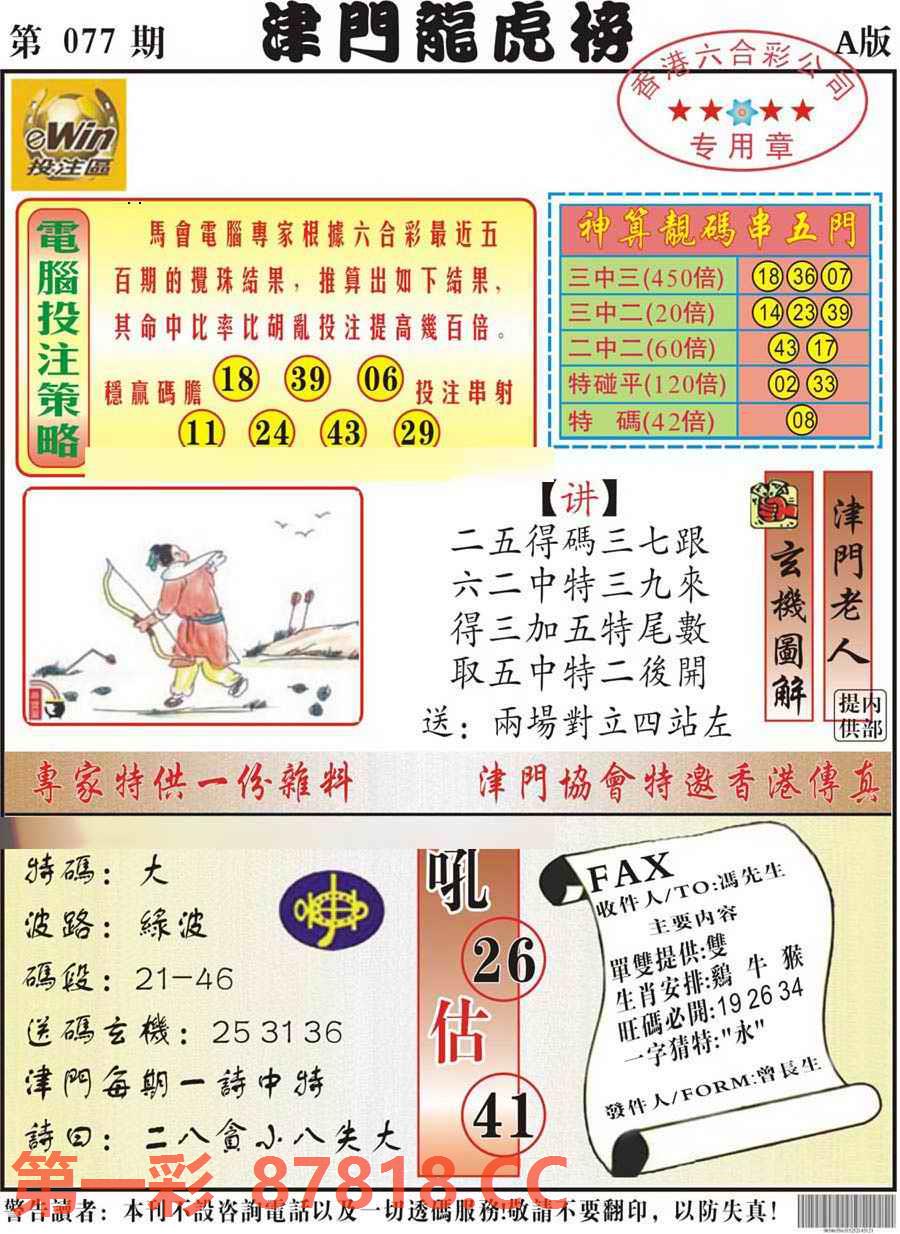 第 077 期
津門龍虎榜
A版
香港六合彩公司
专用章
eWin
投注區
電腦投注策略
馬會電腦專家根據六合彩最近五
百期的攪珠結果，推算出如下結果，
其命中比率比胡亂投注提高幾百倍。
穩贏碼膽 18 39 06 投注串射
11 24 43 29
神算靚碼串五門
三中三(450倍) 18 36 07
三中二(20倍) 14 23 39
二中二(60倍) 43 17
特碰平(120倍) 02 33
特 碼(42倍) 08
【讲】
二五得碼三七跟
六二中特三九來
得三加五特尾數
取五中特二後開
送：兩場對立四站左
玄機圖解
津門老人
内部提供
專家特供一份雜料
津門協會特邀香港傳真
特碼：大
波路：綠波
碼段：21-46
送碼玄機：25 31 36
津門每期一詩中特
詩曰：二八貪小八失大
吼
26
估
41
FAX
收件人/TO:馮先生
主要内容
單雙提供:雙
生肖安排:鷄 牛 猴
旺碼必開:19 26 34
一字猜特:"永"
發件人/FORM:曾長生
第一彩 87818.CC
警告讀者：本刊不設咨詢電話以及一切透碼服務!敬請不要翻印，以防失真!